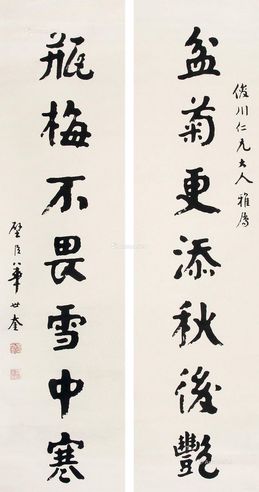 俊川仁兄大人雅属
盆菊更添秋後艷
瓶梅不畏雪中寒
璧臣華世奎